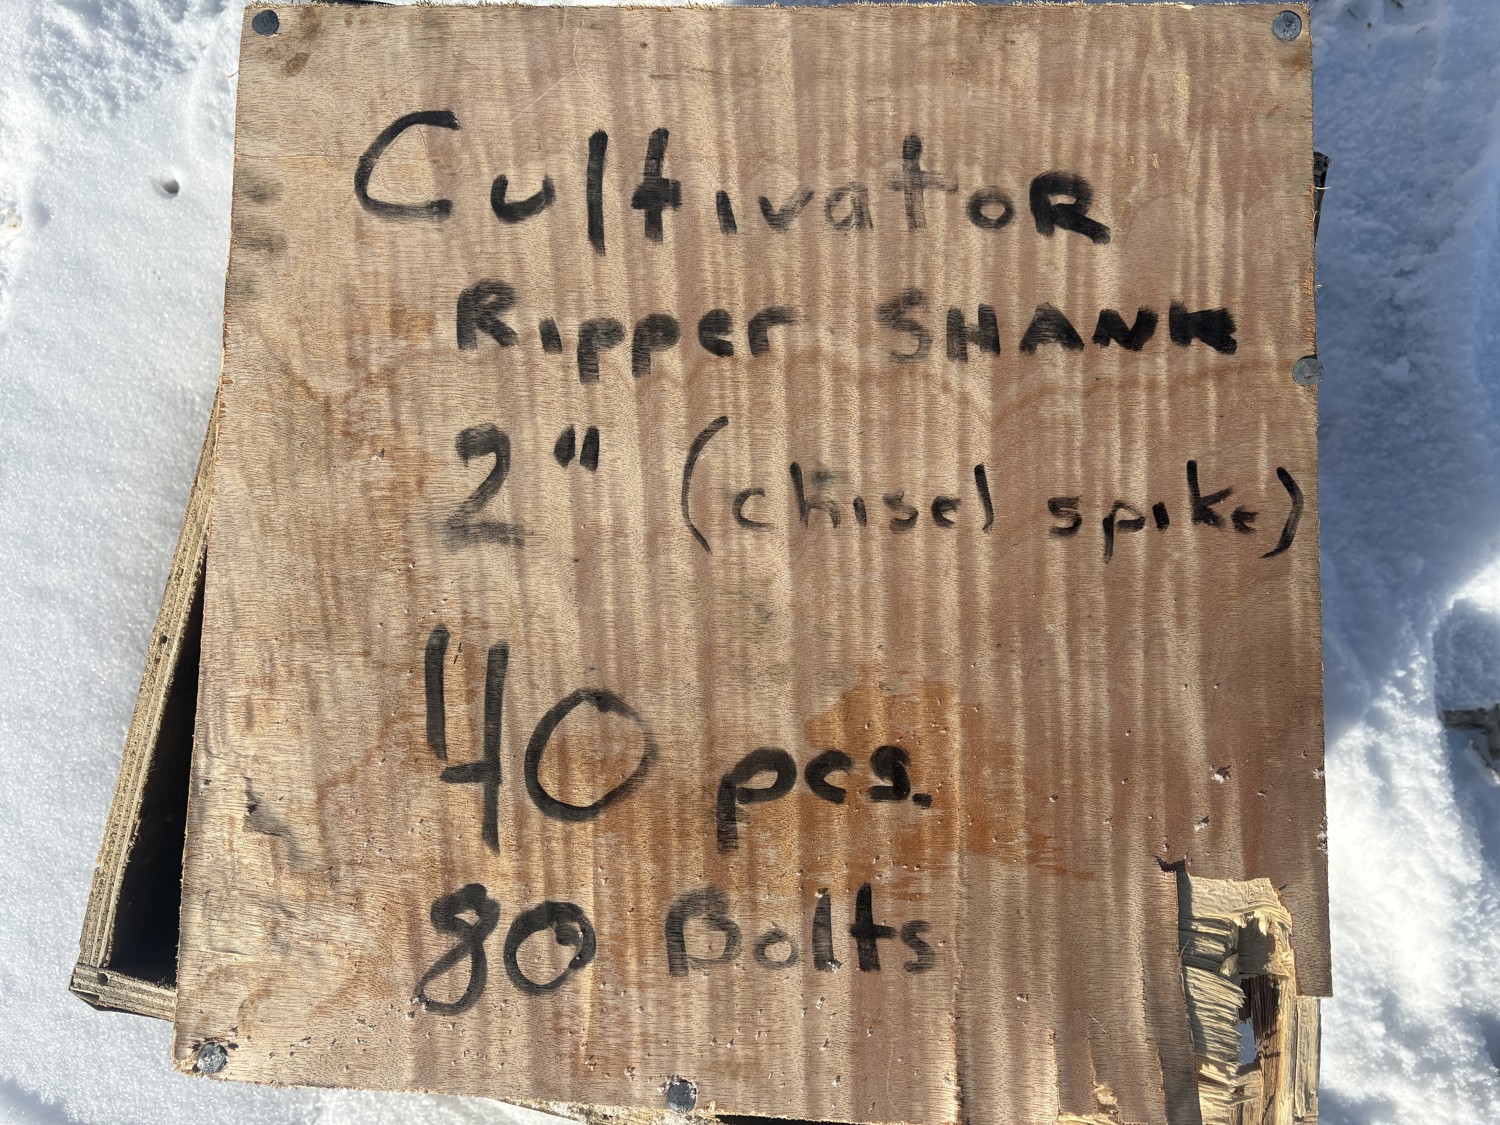 CultivatoR
Ripper SHANK
2" (chisel spike)
40 pcs.
80 Bolts